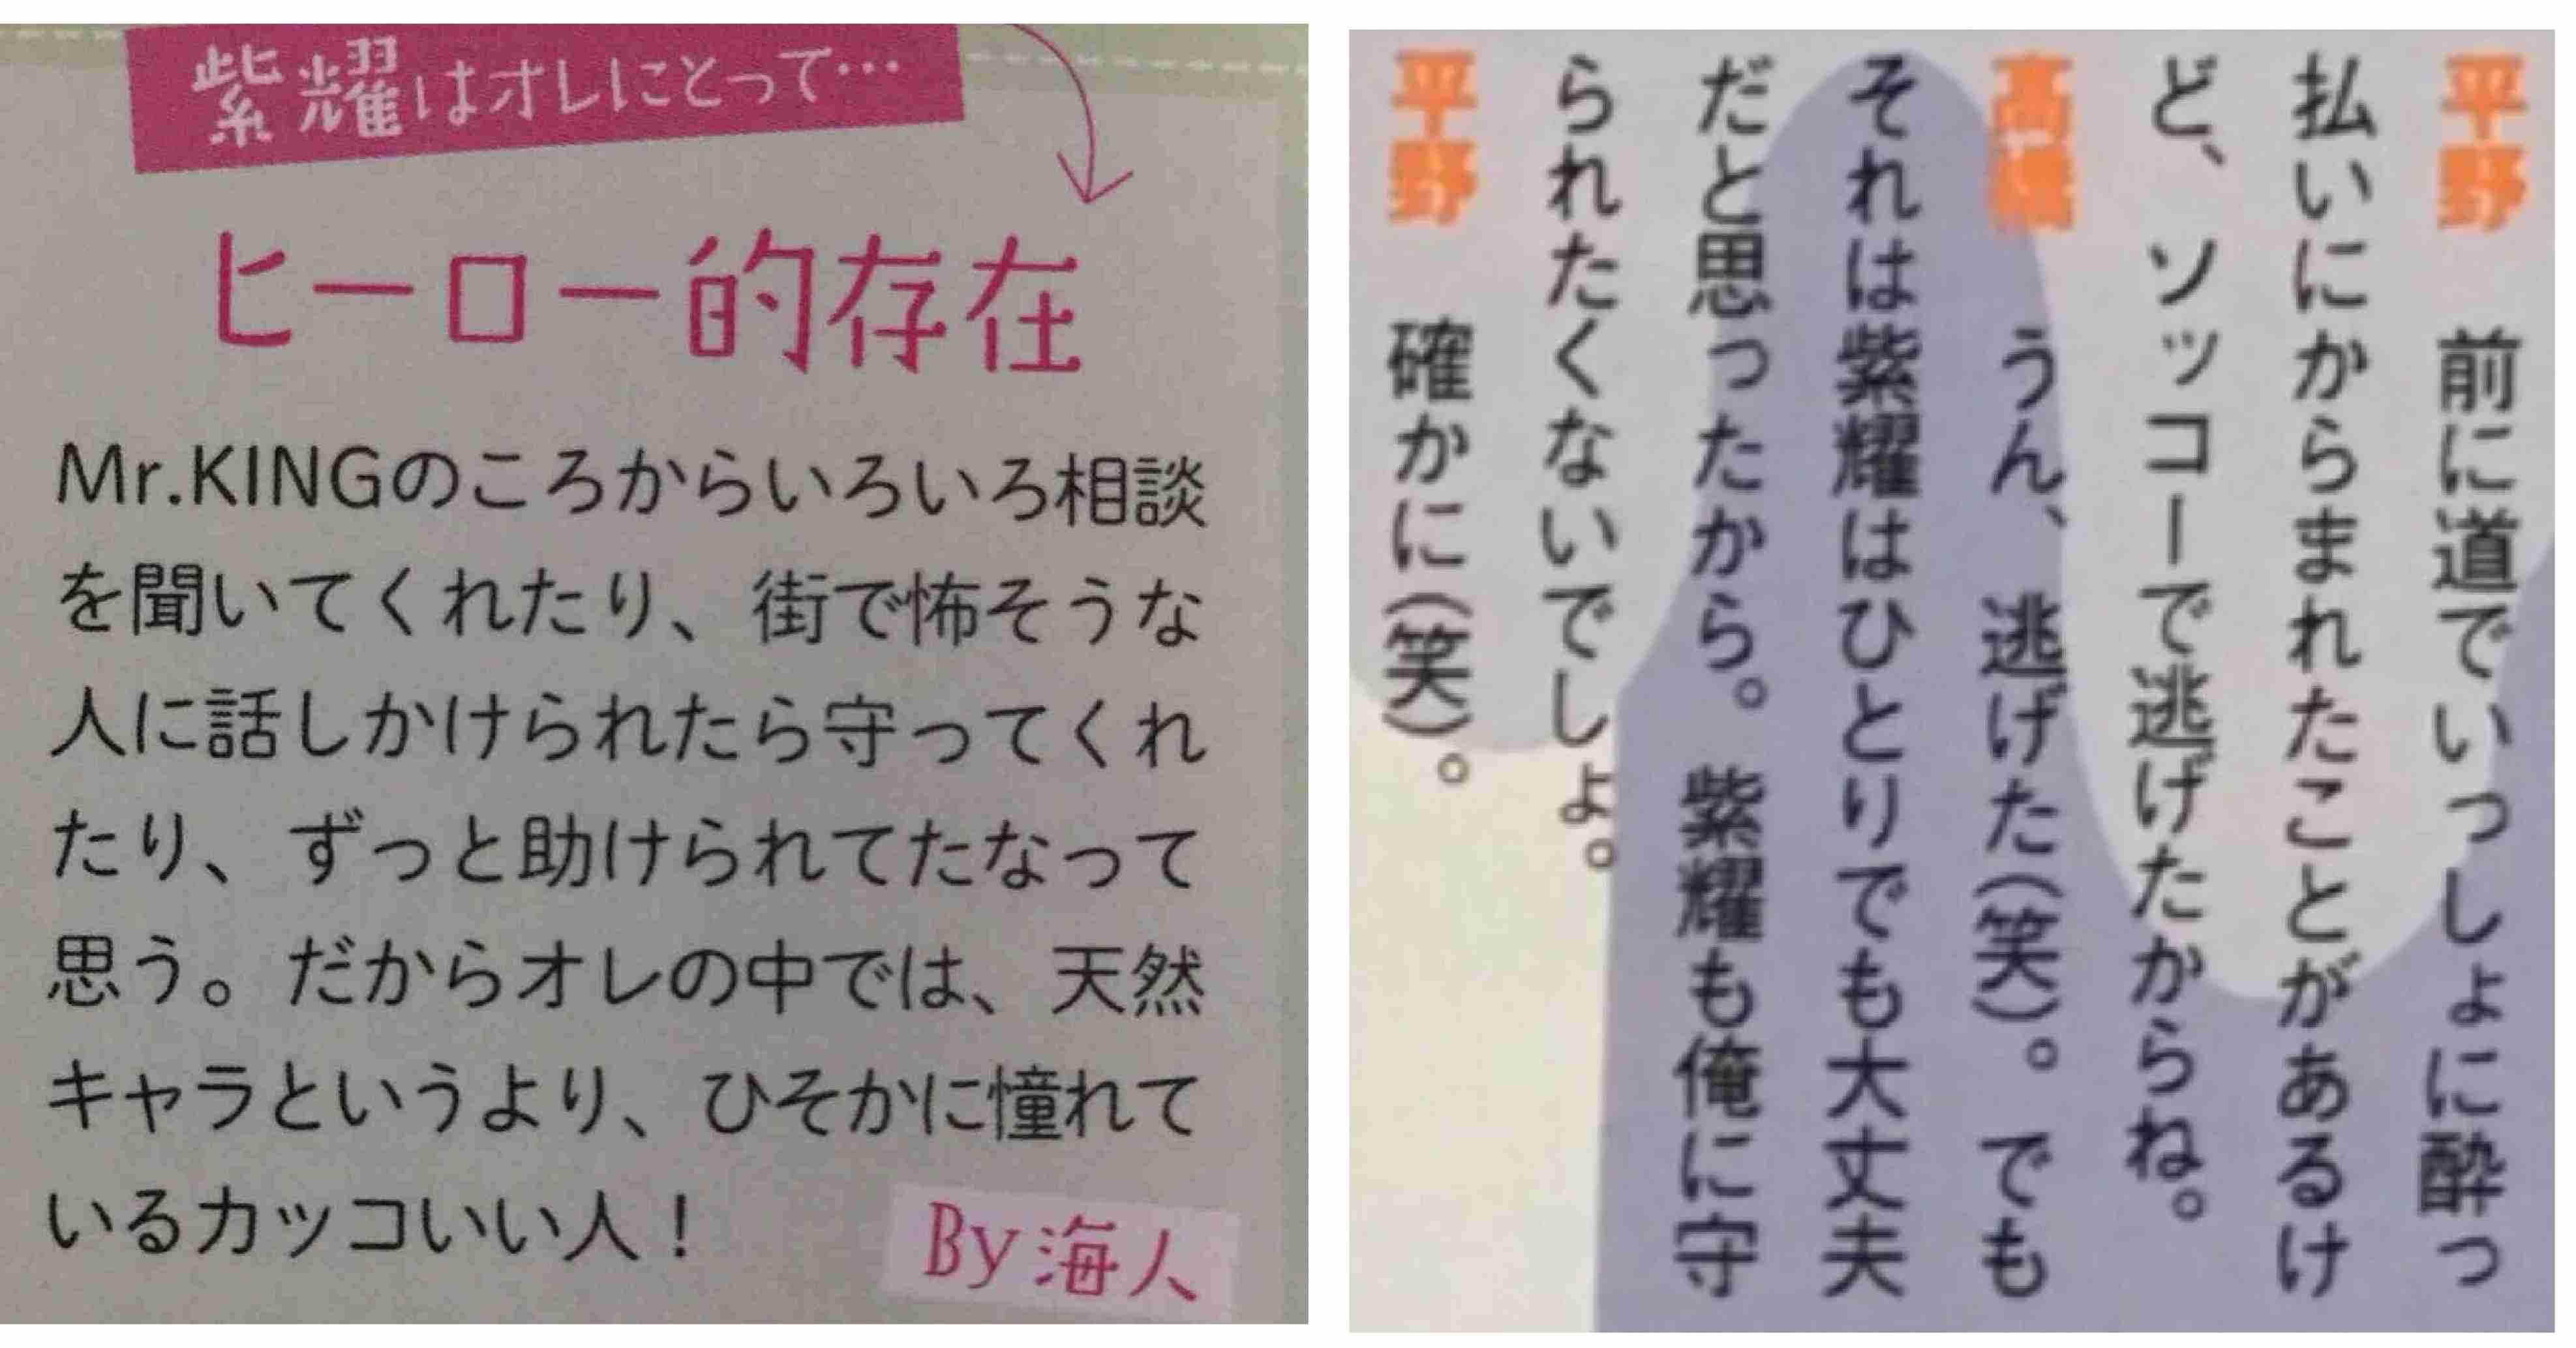 紫耀はオレにとって…
ヒーロー的存在
Mr.KINGのころからいろいろ相談
を聞いてくれたり、街で怖そうな
人に話しかけられたら守ってくれ
たり、ずっと助けられてたなって
思う。だからオレの中では、天然
キャラというより、ひそかに憧れて
いるカッコいい人！
By 海人
平野　前に道でいっしょに酔っ
払いにからまれたことがあるけ
ど、ソッコーで逃げたからね。
髙橋　うん、逃げた（笑）。でも
それは紫耀はひとりでも大丈夫
だと思ったから。紫耀も俺に守
られたくないでしょ。
平野　確かに（笑）。